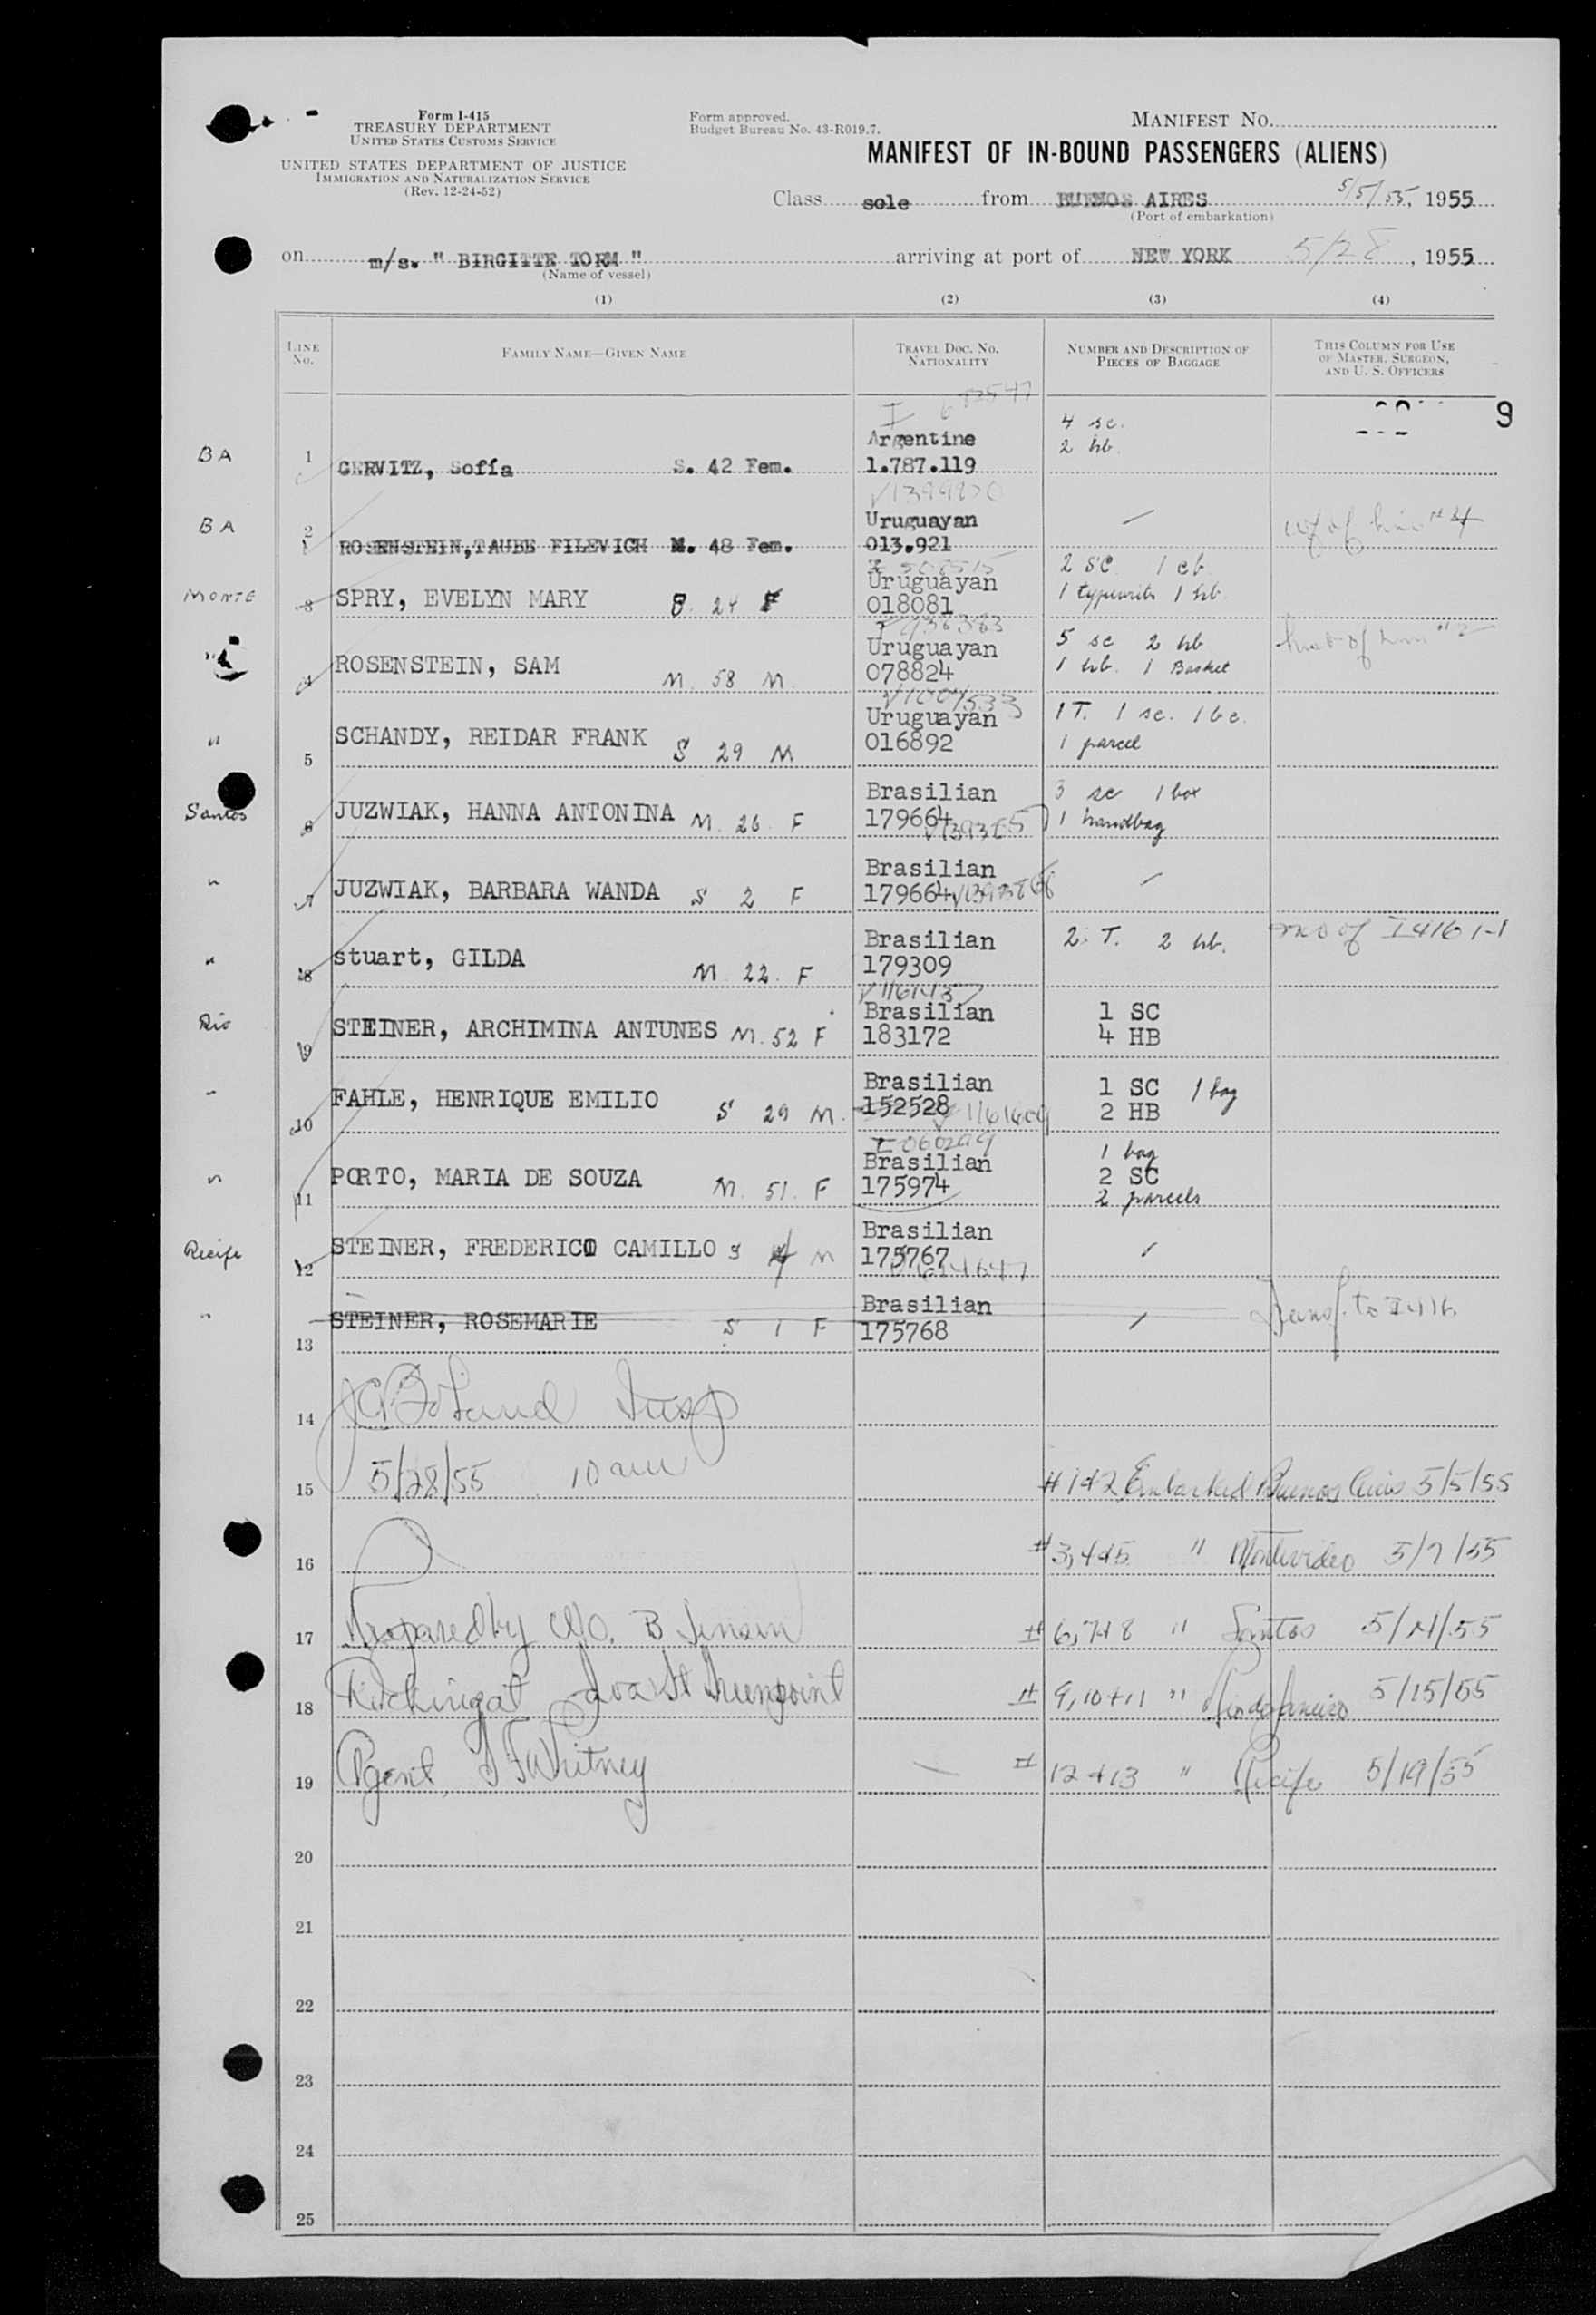 Form I-415
TREASURY DEPARTMENT
UNITED STATES CUSTOMS SERVICE
UNITED STATES DEPARTMENT OF JUSTICE
IMMIGRATION AND NATURALIZATION SERVICE
(Rev. 12-24-52)
Form approved.
Budget Bureau No. 43-R019.7.
MANIFEST NO.
MANIFEST OF IN-BOUND PASSENGERS (ALIENS)
Class sole from BUENOS AIRES 5/5/55, 1955
(Port of embarkation)
on m/s. " BIRGITTE TORM " arriving at port of NEW YORK 5/28, 1955
(Name of vessel)
(1) (2) (3) (4)
LINE NO. FAMILY NAME—GIVEN NAME TRAVEL DOC. NO. NATIONALITY NUMBER AND DESCRIPTION OF PIECES OF BAGGAGE THIS COLUMN FOR USE OF MASTER, SURGEON, AND U. S. OFFICERS
9
I
Argentine 4 sc.
BA 1 GERVITZ, Sofía S. 42 Fem. 1.787.119 2 hb.
Uruguayan
BA 2 ROSENSTEIN, TAUBE FILEVICH M. 48 Fem. 013.921 — wf of line #4
Uruguayan 2 SC 1 cb
MONTE 3 SPRY, EVELYN MARY 24 F 018081 1 typewrite 1 hb
Uruguayan 5 sc 2 hb
" 4 ROSENSTEIN, SAM M. 58 M. 078824 1 hb. 1 Basket
Uruguayan 1 T. 1 sc.
" 5 SCHANDY, REIDAR FRANK S 29 M 016892 1 parcel
Brasilian 3 sc 1 box
Santos 6 JUZWIAK, HANNA ANTONINA M. 26 F 179664 1 handbag
Brasilian
" 7 JUZWIAK, BARBARA WANDA S 2 F 179664
Brasilian 2. T. 2 hb.
" 8 stuart, GILDA M. 22. F 179309
Brasilian 1 SC
Rio 9 STEINER, ARCHIMINA ANTUNES M. 52 F 183172 4 HB
Brasilian 1 SC 1 bag
" 10 FAHLE, HENRIQUE EMILIO S 29 M. 152528 2 HB
Brasilian 1 bag
" 11 PORTO, MARIA DE SOUZA M. 51. F 175974 2 SC
2 parcels
Brasilian
Recife 12 STEINER, FREDERICO CAMILLO S 4 M 175767
Brasilian
" 13 STEINER, ROSEMARIE S 1 F 175768 Transf. to I 416
14 Insp
15 5/28/55 10 am #1+2 Embarked Buenos Aires 5/5/55
16 #3,4+5 " Montevideo 5/7/55
17 Prepared by B Jensen # 6,7+8 " Santos
18 Java St Greenpoint # 9,10+11 " Rio de Janeiro 5/15/55
19 Agent, Whitney # 12+13 " Recife 5/19/55
20
21
22
23
24
25